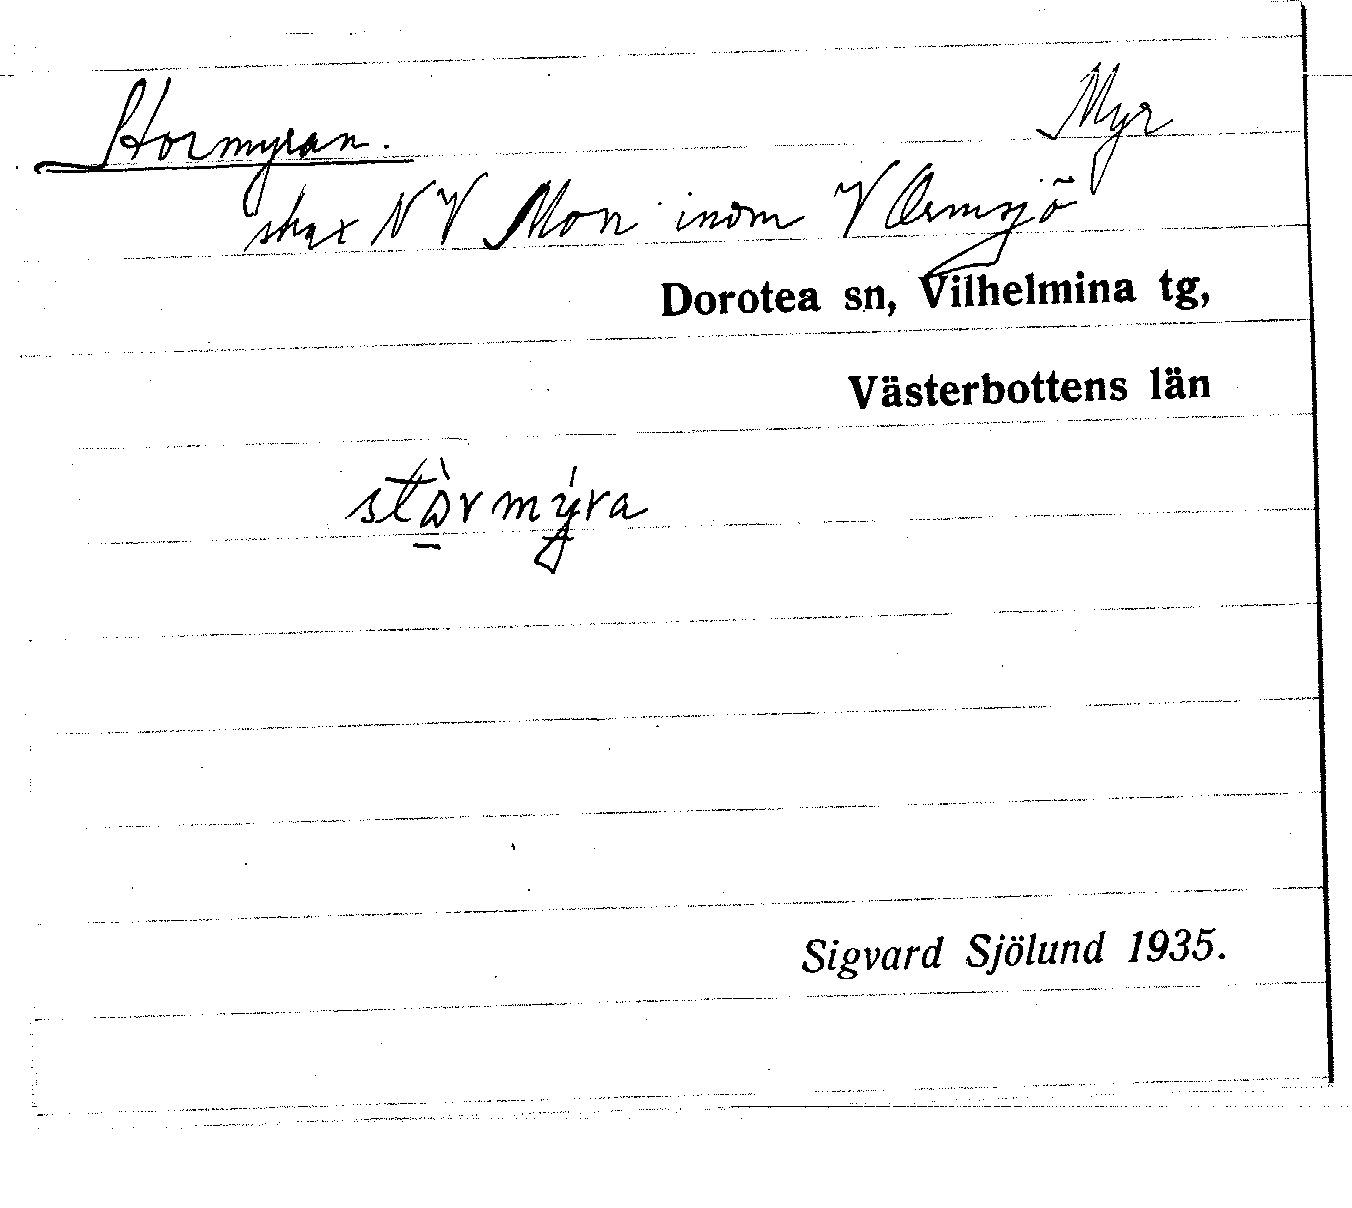 Stormyran. Myr
strax NV Mon inom V Ormsjö
Dorotea sn, Vilhelmina tg,
Västerbottens län
stòrmýra
Sigvard Sjölund 1935.